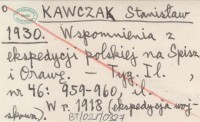 KAWCZAK Stanisław
1930. Wspomnienia z
ekspedycji polskiej na Spisz
i Orawę. – Tyg. Il.,
nr 46: 959-960, il.
W r. 1918 (ekspedycja woj-
skowa). BT/021/0327